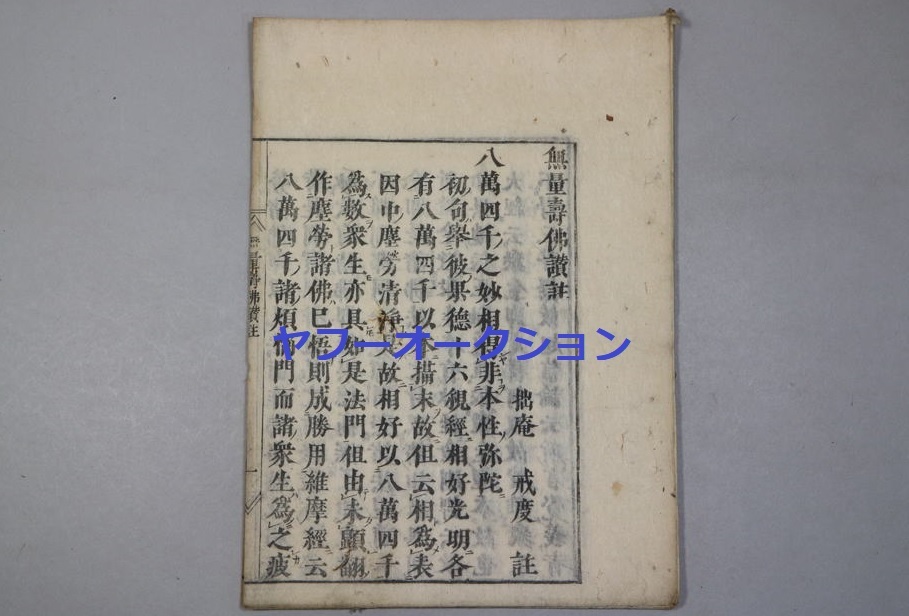 無量壽佛讃註
拙庵 戒度 註
八萬四千之妙相得非本性弥陀
初句舉彼果德十六觀經相好光明各
有八萬四千以本攝末故但云相為表
因中塵勞清淨是故相好以八萬四千
為數衆生亦具如是法門但由未顯翻
作塵勞諸佛已悟則成勝用維摩經云
八萬四千諸煩惱門而諸衆生為之疲
無量壽佛讃註
一
ヤフーオークション